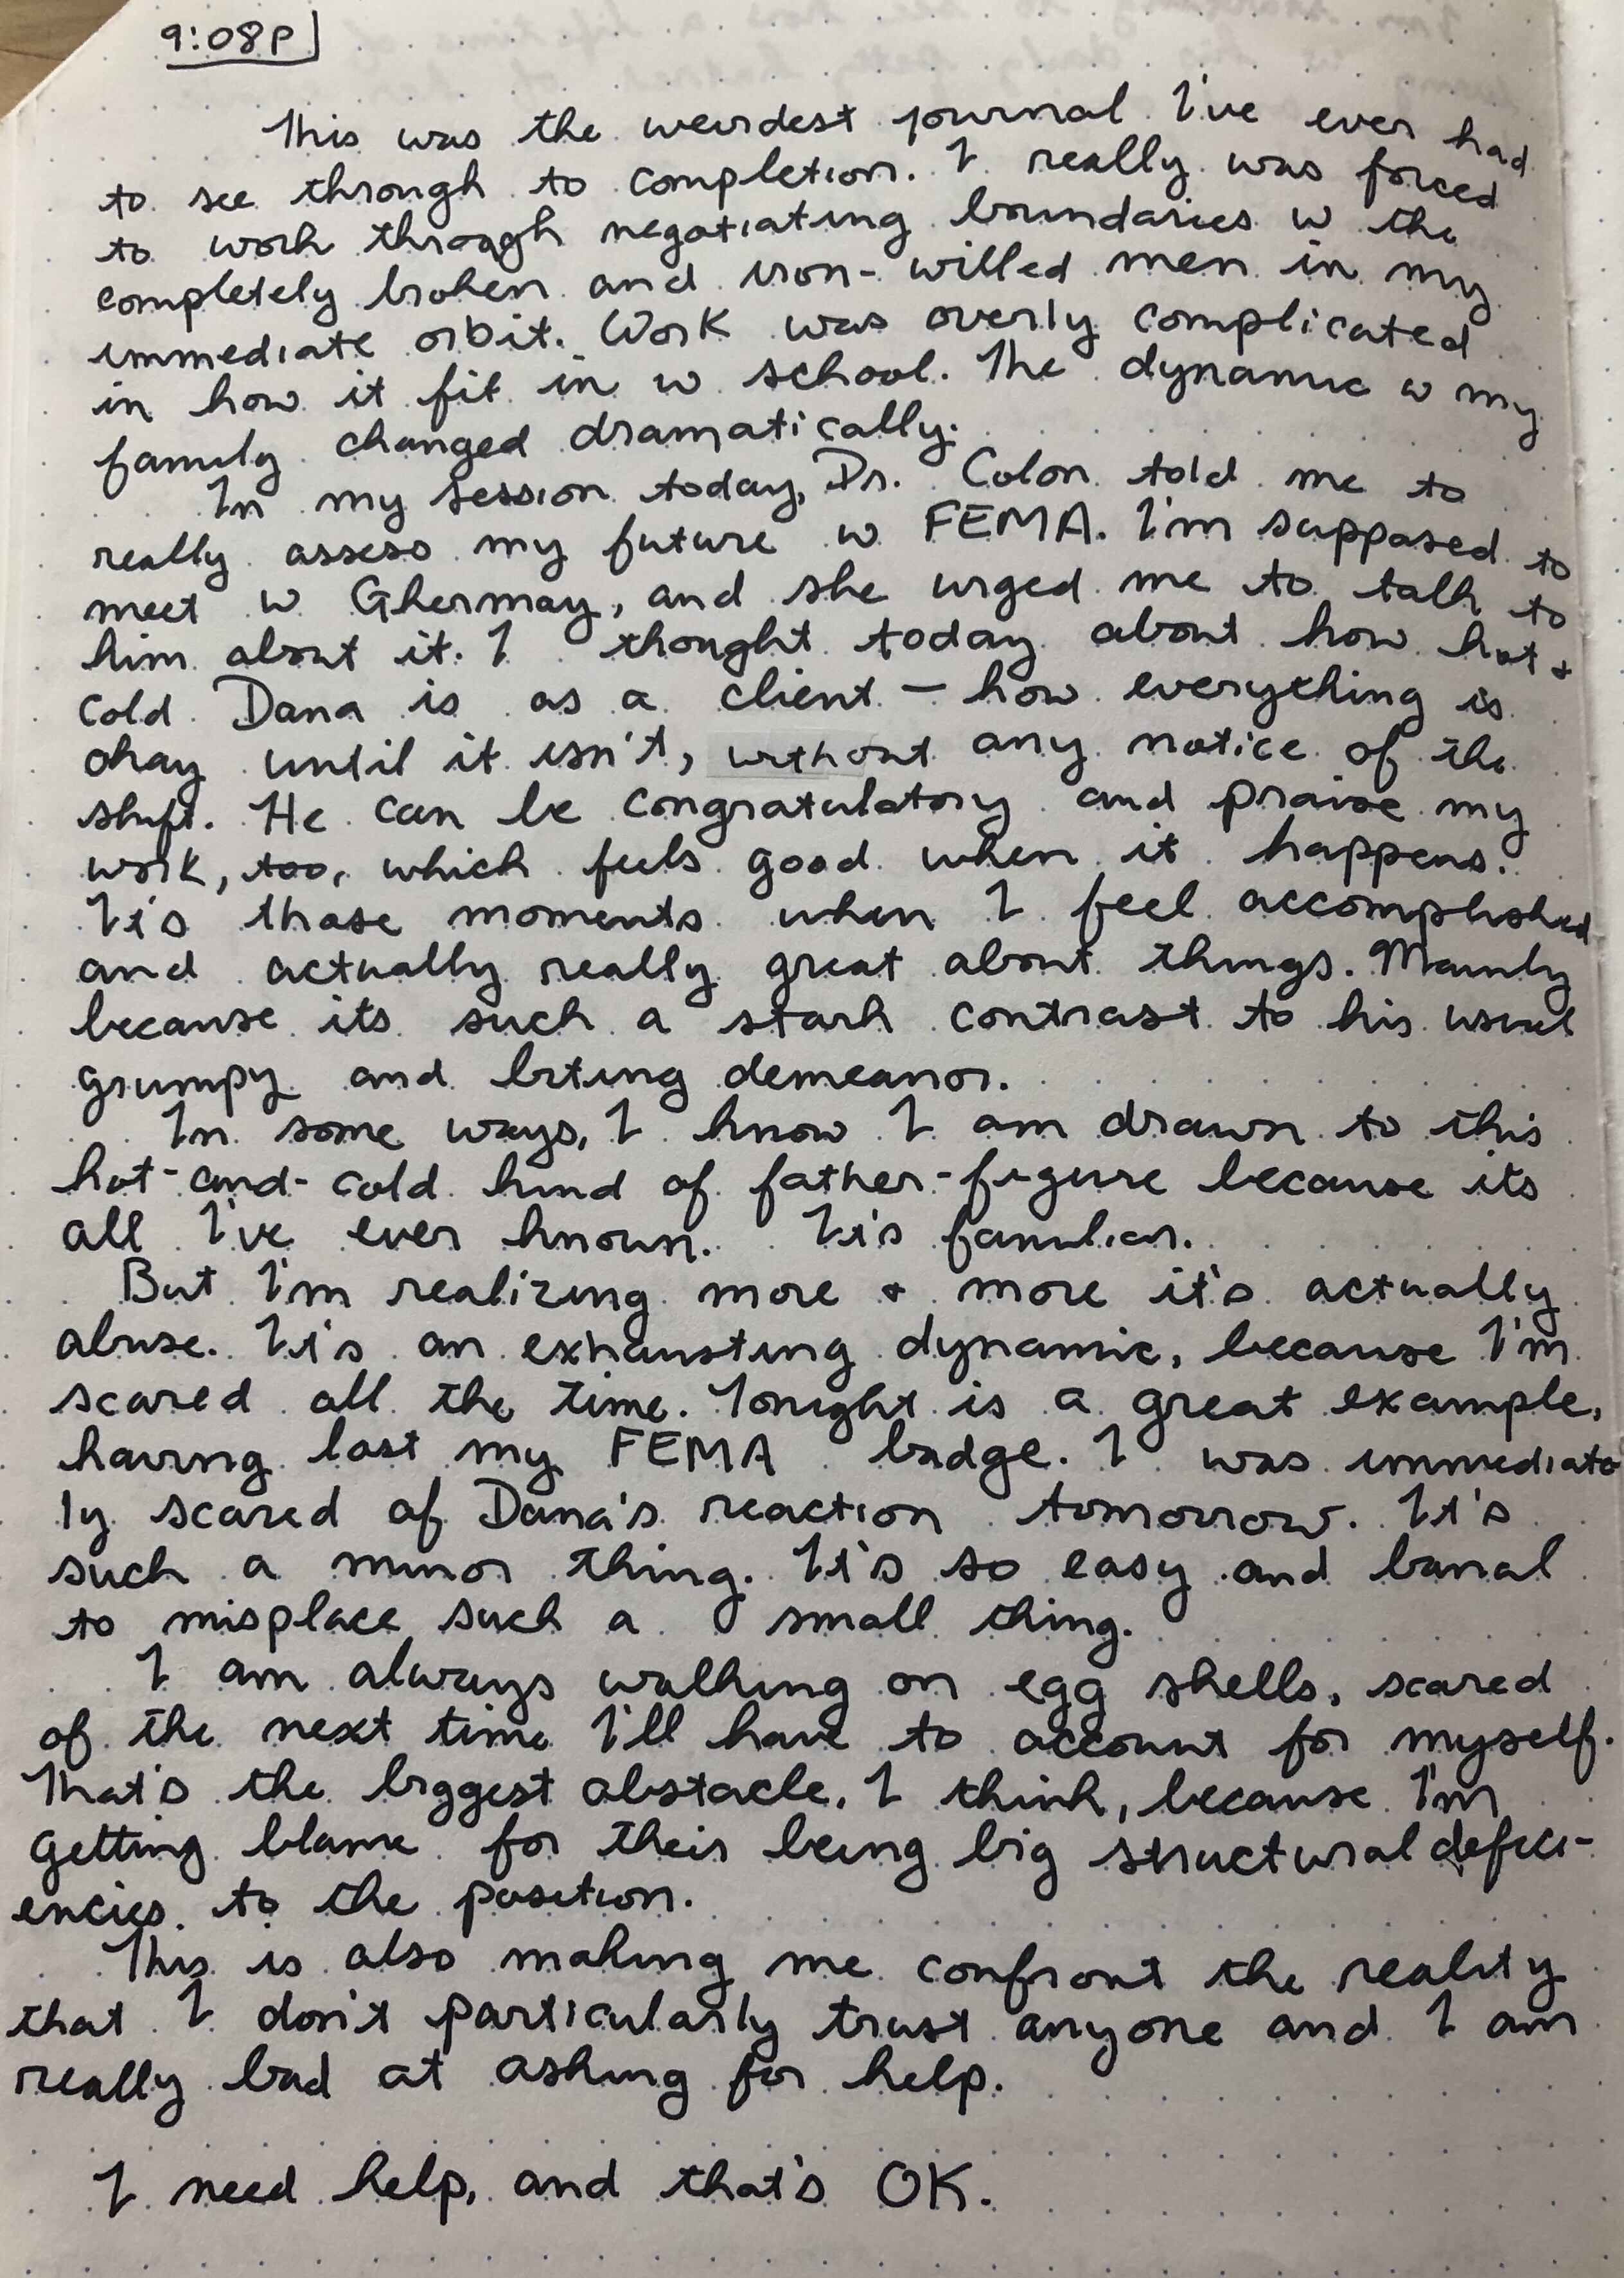 9:08P
This was the weirdest journal I've ever had
to see through to completion. I really was forced
to work through negotiating boundaries w the
completely broken and iron-willed men in my
immediate orbit. Work was overly complicated
in how it fit in w school. The dynamic w my
family changed dramatically.
In my session today, Dr. Colon told me to
really assess my future w FEMA. I'm supposed to
meet w Ghermay, and she urged me to talk to
him about it. I thought today about how hot +
cold Dana is as a client – how everything is
okay until it isn't, without any notice of the
shift. He can be congratulatory and praise my
work, too, which feels good when it happens.
It's those moments when I feel accomplished
and actually really great about things. Mainly
because its such a stark contrast to his usual
grumpy and biting demeanor.
In some ways, I know I am drawn to this
hot-and-cold kind of father-figure because its
all I've ever known. It's familiar.
But I'm realizing more + more it's actually
abuse. It's an exhausting dynamic, because I'm
scared all the time. Tonight is a great example,
having lost my FEMA badge. I was immediate
ly scared of Dana's reaction tomorrow. It's
such a minor thing. It's so easy and banal
to misplace such a small thing.
I am always walking on egg shells, scared
of the next time I'll have to account for myself.
That's the biggest obstacle, I think, because I'm
getting blame for their being big structural defici-
encies to the position.
This is also making me confront the reality
that I don't particularly trust anyone and I am
really bad at asking for help.
I need help, and that's OK.